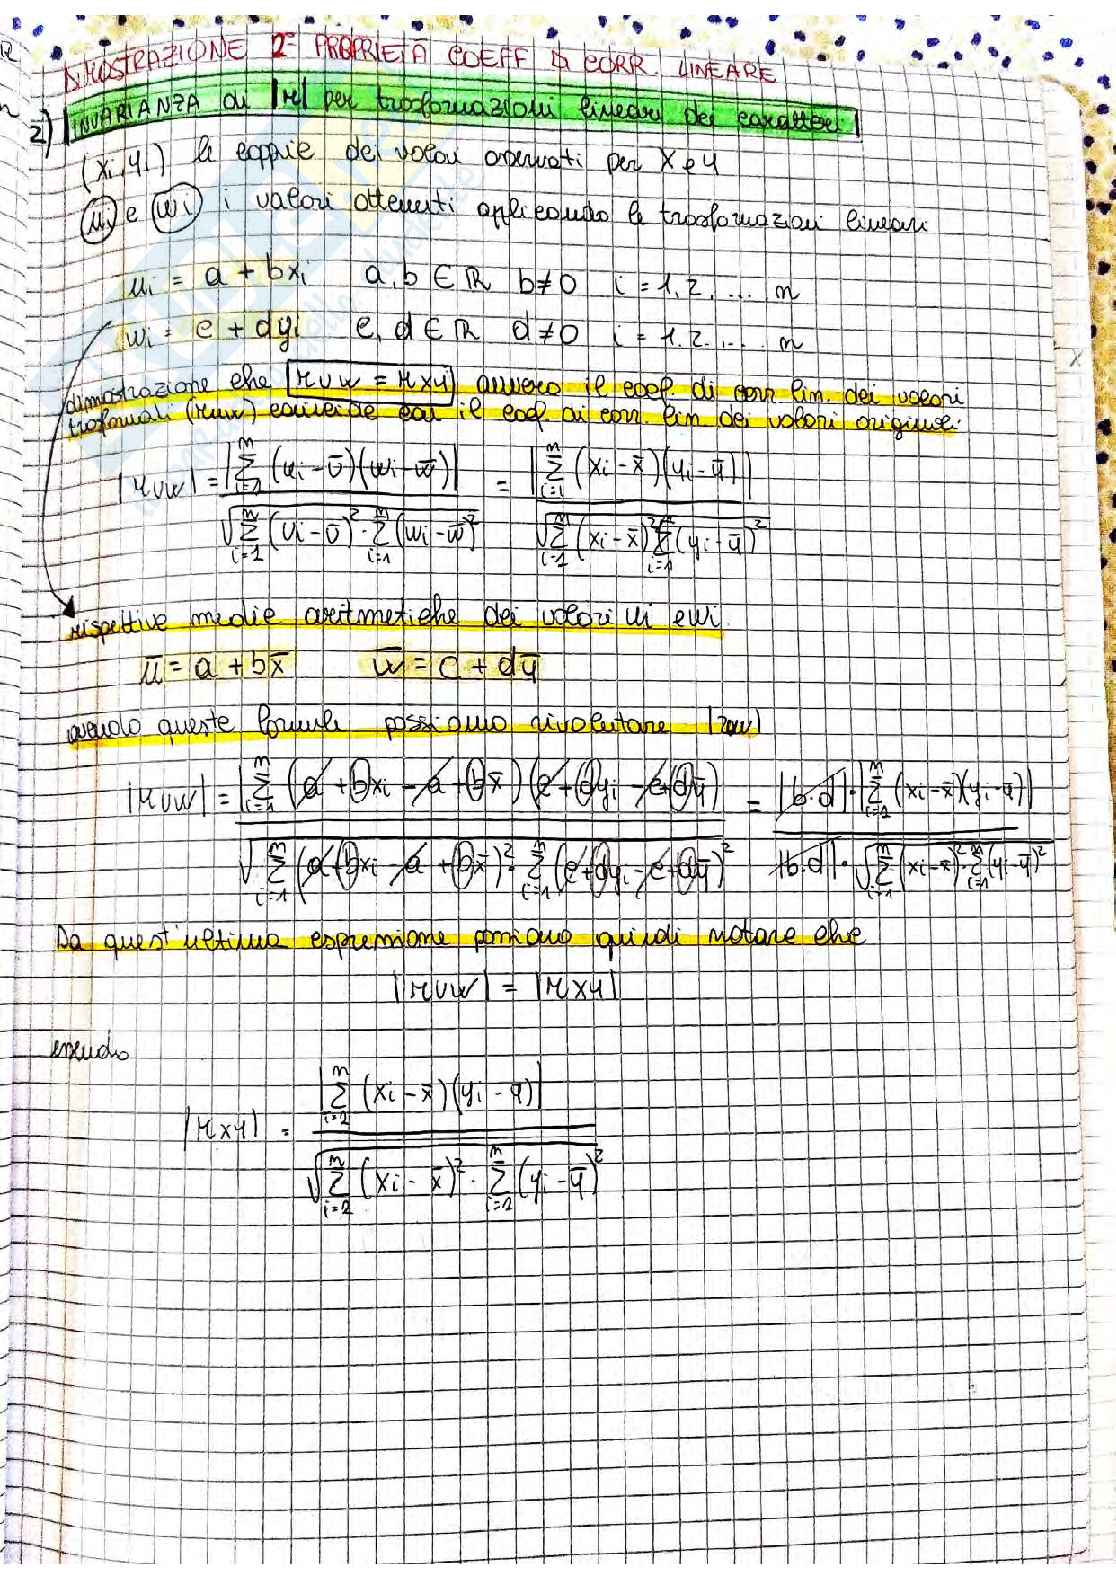 DIMOSTRAZIONE 2° PROPRIETÀ COEFF DI CORR. LINEARE
2) INVARIANZA di |r| per trasformazioni lineari dei caratteri
(xi, yi) le coppie dei valori osservati per X e Y
ui e wi i valori ottenuti applicando le trasformazioni lineari
ui = a + bxi a, b ∈ R b≠0 i = 1, 2, ... n
wi = c + dyi c, d ∈ R d≠0 i = 1, 2, ... n
dimostrazione che ruw = rxy ovvero il coef. di corr lin. dei valori
trasformati (ruw) coincide con il coef. di corr. lin dei valori origine.
|ruw| = |Σ(i=1, n) (ui − ū)(wi − w̄)| / √Σ(i=1, n) (ui − ū)² · Σ(i=1, n) (wi − w̄)² = |Σ(i=1, n) (xi − x̄)(yi − ȳ)| / √Σ(i=1, n) (xi − x̄)² Σ(i=1, n) (yi − ȳ)²
rispettive medie aritmetiche dei valori ui e wi.
ū = a + bx̄ w̄ = c + dȳ
avendo queste formule possiamo rivalutare |ruw|
|ruw| = |Σ(i=1, n) (a + bxi − a + bx̄)(c + dyi − c + dȳ)| / √Σ(i=1, n) (a + bxi − a + bx̄)² · Σ(i=1, n) (c + dyi − c + dȳ)² = |b·d| · |Σ(i=1, n) (xi − x̄)(yi − ȳ)| / |b·d| · √Σ(i=1, n) (xi − x̄)² · Σ(i=1, n) (yi − ȳ)²
Da quest'ultima espressione possiamo quindi notare che
|ruw| = |rxy|
essendo
|rxy| = |Σ(i=1, n) (xi − x̄)(yi − ȳ)| / √Σ(i=1, n) (xi − x̄)² · Σ(i=1, n) (yi − ȳ)²